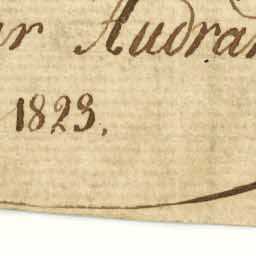 ur Audran
1823.